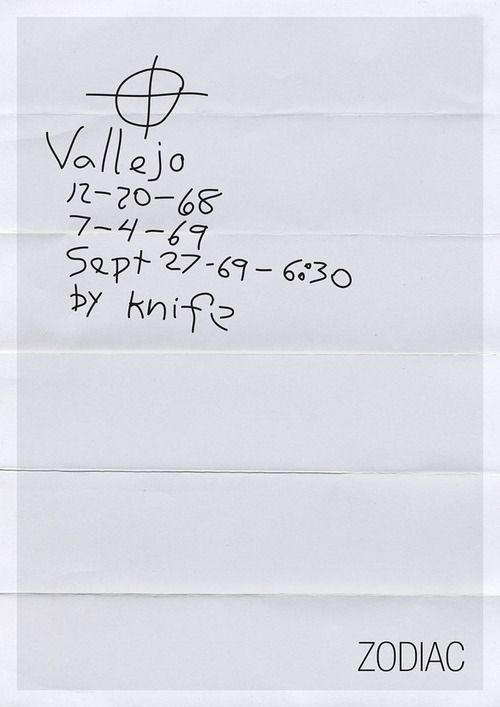 Vallejo
12-20-68
7-4-69
Sept 27-69-6:30
by knife
ZODIAC